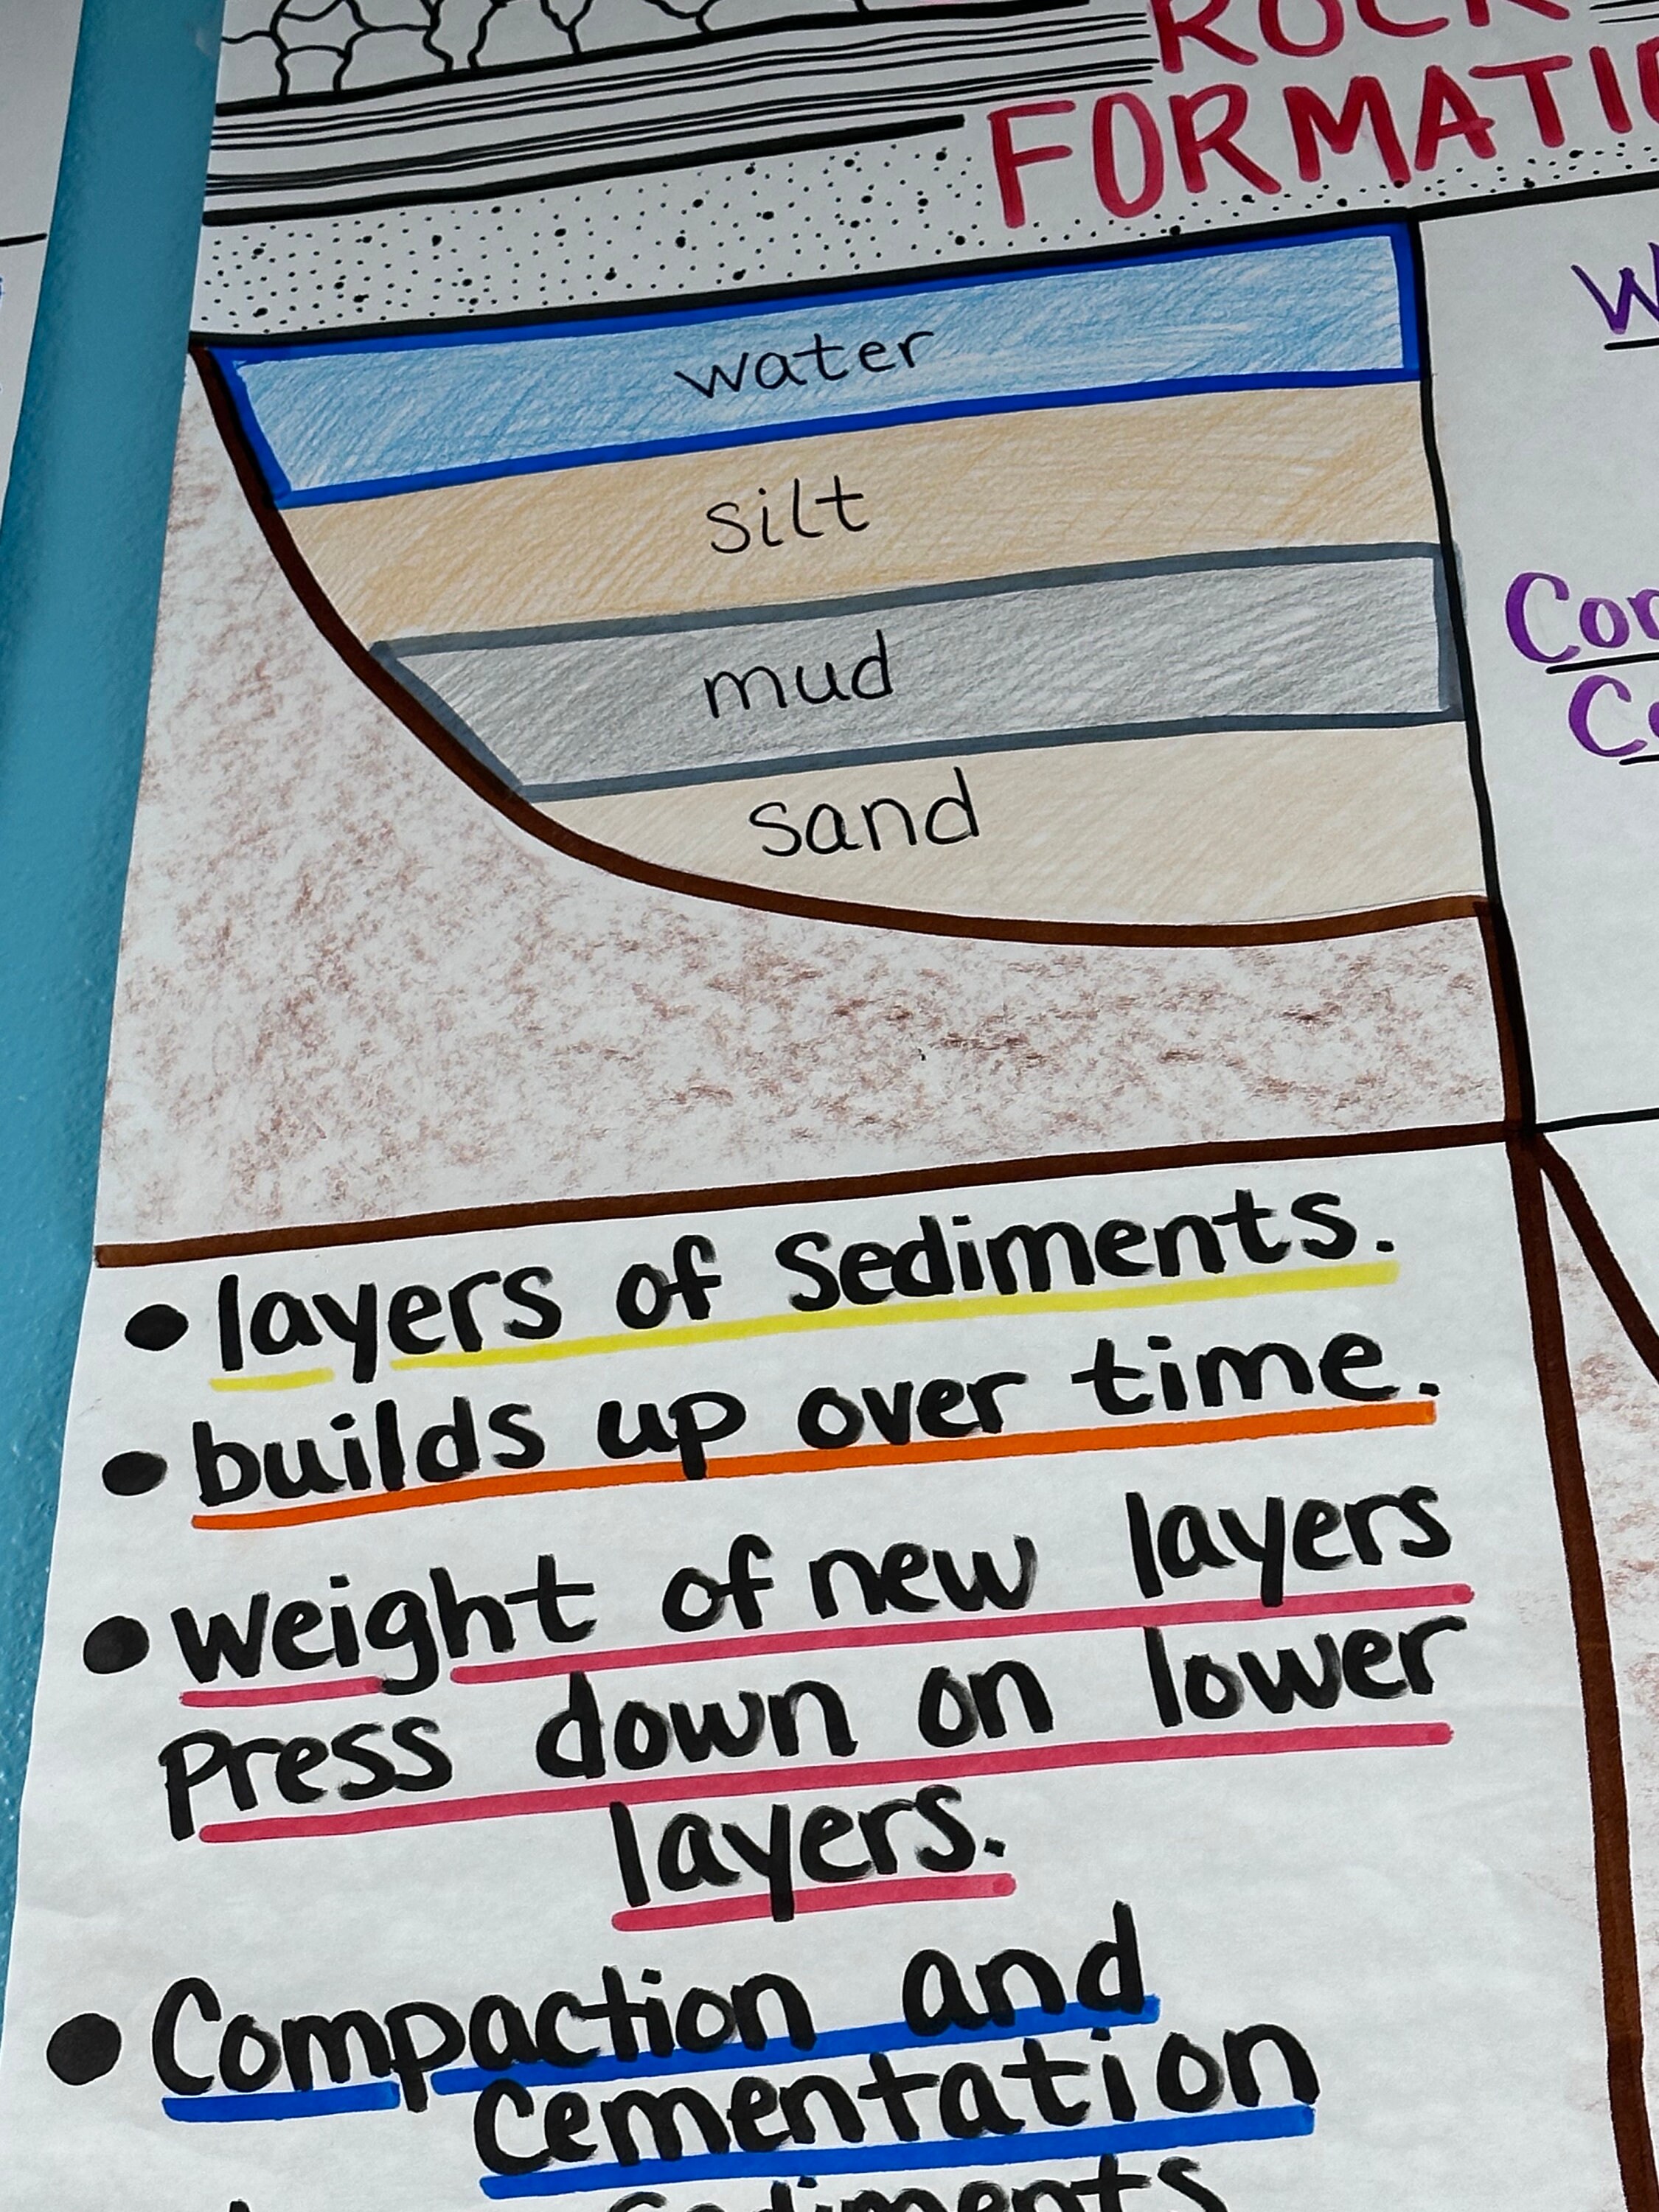 ROCK
water
silt
mud
sand
• layers of Sediments.
• builds up over time.
• Weight of new layers
Press down on lower
layers.
• Compaction and
Cementation